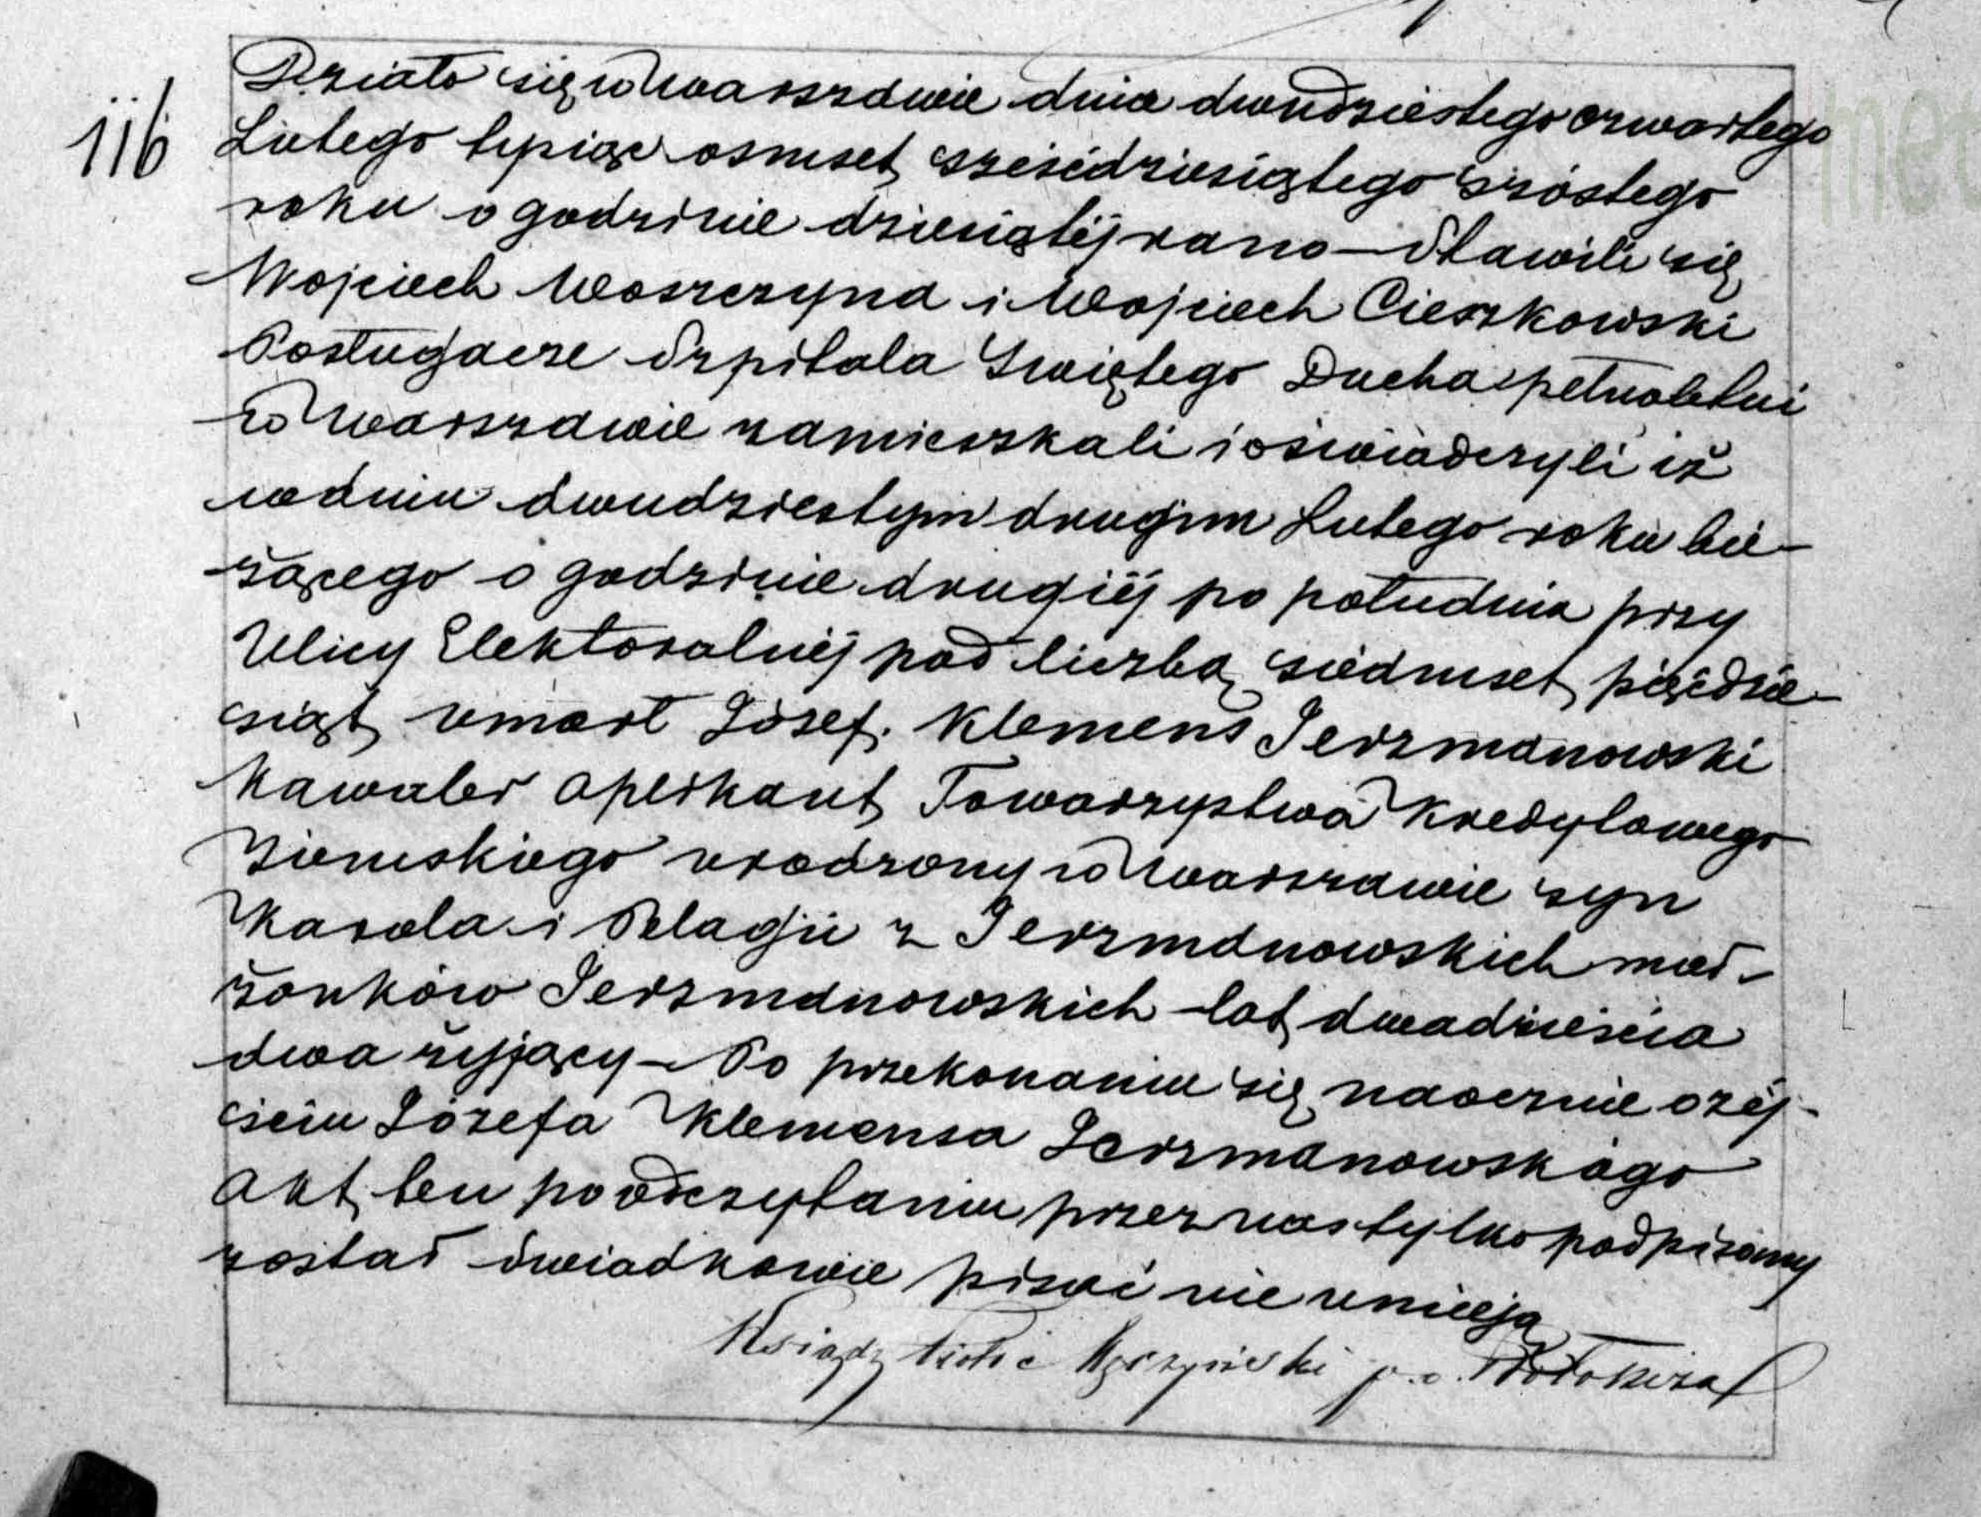 116
Działo się w Warszawie dnia dwudziestego czwartego
Lutego tysiąc ośmset sześćdziesiątego szóstego
roku o godzinie dziesiątéj rano – Stawili się
Wojciech Woszczyna i Wojciech Cieszkowski
Posługacze Szpitala Świętego Ducha pełnoletni
w Warszawie zamieszkali i oświadczyli iż
w dniu dwudziestym drugim Lutego roku bie-
żącego o godzinie drugiéj po południu przy
Ulicy Elektoralnéj pod liczbą siedmset pięćdzie-
siąt umarł Józef Klemens Jerzmanowski
Kawaler Aplikant Towarzystwa Kredytowego
Ziemskiego urodzony w Warszawie syn
Karola i Pelagji z Jerzmanowskich mał-
żonków Jerzmanowskich – lat dwadzieścia
dwa żyjący – Po przekonaniu się naocznie o zéj-
ściu Józefa Klemensa Jerzmanowskiego
Akt ten po odczytaniu przez nas tylko podpisany
został świadkowie pisać nie umieją
Ksiądz p.o.
met